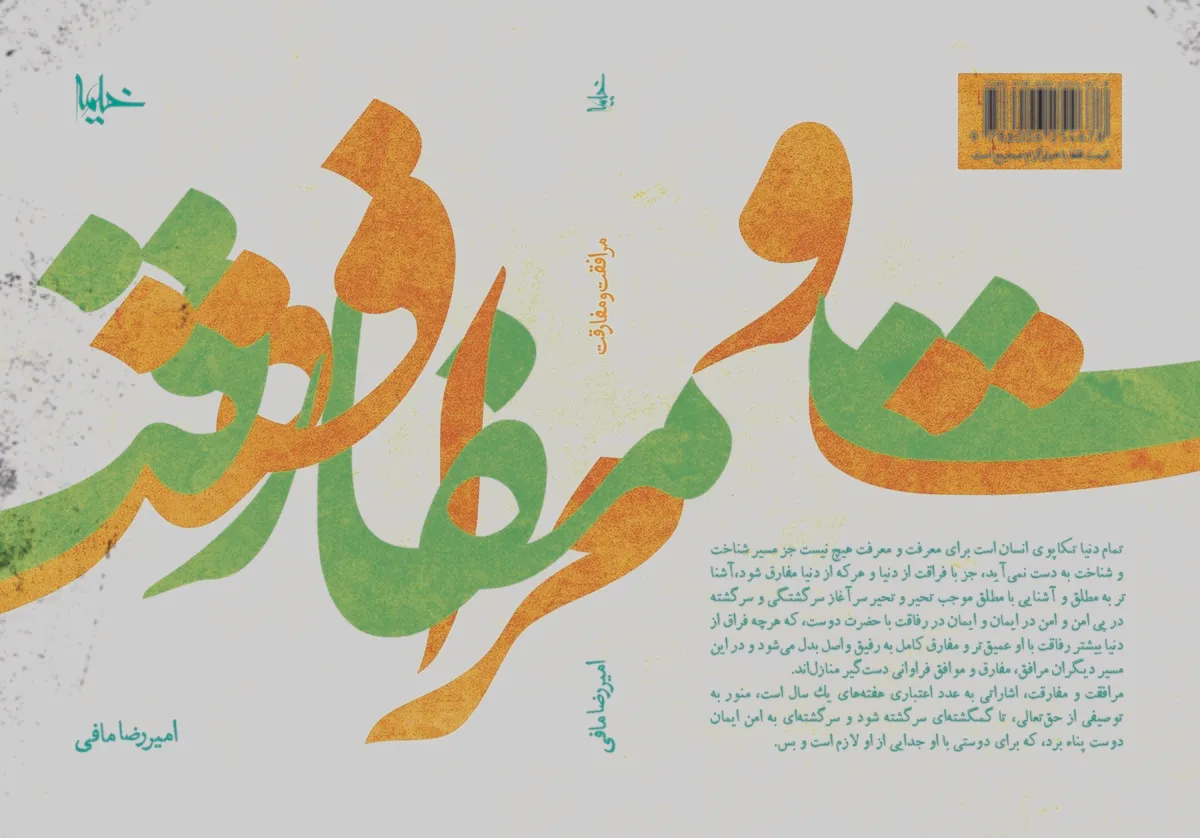 خیلیها
امیررضا مافی
مرافقت و مفارقت
خیلیها
مرافقت و مفارقت
امیررضا مافی
تمام دنیا تکاپوی انسان است برای معرفت و معرفت هیچ نیست جز مسیر شناخت
و شناخت به دست نمی‌آید، جز با فراقت از دنیا و هرکه از دنیا مفارق شود،آشنا
تر به مطلق و آشنایی با مطلق موجب تحیر و تحیر سرآغاز سرگشتگی و سرگشته
در پی امن و امن در ایمان و ایمان در رفاقت با حضرت دوست، که هرچه فراق از
دنیا بیشتر رفاقت با او عمیق‌تر و مفارق کامل به رفیق واصل بدل می‌شود و در این
مسیر دیگران مرافق، مفارق و موافق فراوانی دست‌گیر منازل‌اند.
مرافقت و مفارقت، اشاراتی به عدد اعتباری هفته‌های یك سال است، منور به
توصیفی از حق‌تعالی، تا گمگشته‌ای سرگشته شود و سرگشته‌ای به امن ایمان
دوست پناه برد، که برای دوستی با او جدایی از او لازم است و بس.